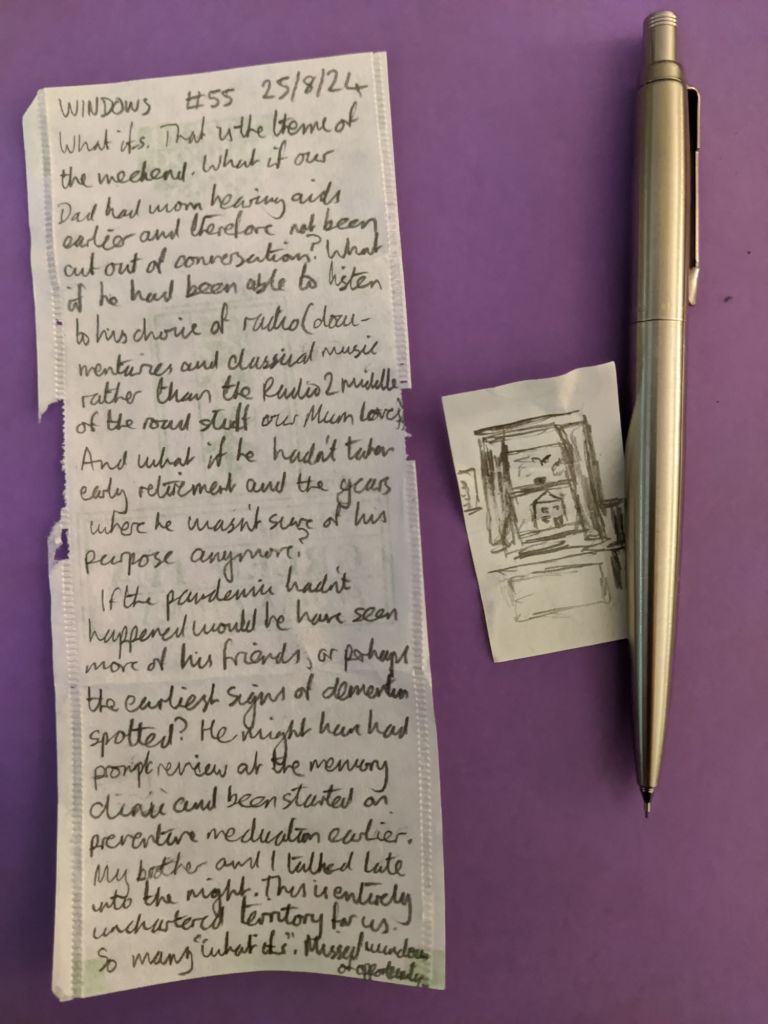 WINDOWS #55 25/8/24
What ifs. That is the theme of
the weekend. What if our
Dad had worn hearing aids
earlier and therefore not been
cut out of conversation? What
if he had been able to listen
to his choice of radio (docu-
mentaries and classical music
rather than the Radio 2 middle-
of the road stuff our Mum loves)
And what if he hadn't taken
early retirement and the years
where he wasn't sure of his
purpose anymore?
If the pandemic hadn't
happened would he have seen
more of his friends, or perhaps
the earliest signs of dementia
spotted? He might have had
prompt review at the memory
clinic and been started on
preventive medication earlier.
My brother and I talked late
into the night. This is entirely
unchartered territory for us.
So many "what ifs". Missed windows
of opportunity.